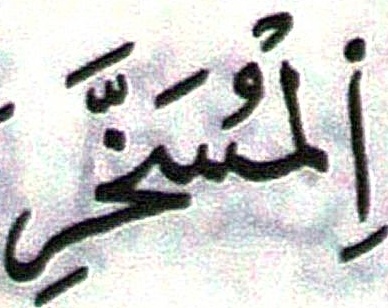 اِ۬لْمُسَخَّرِ